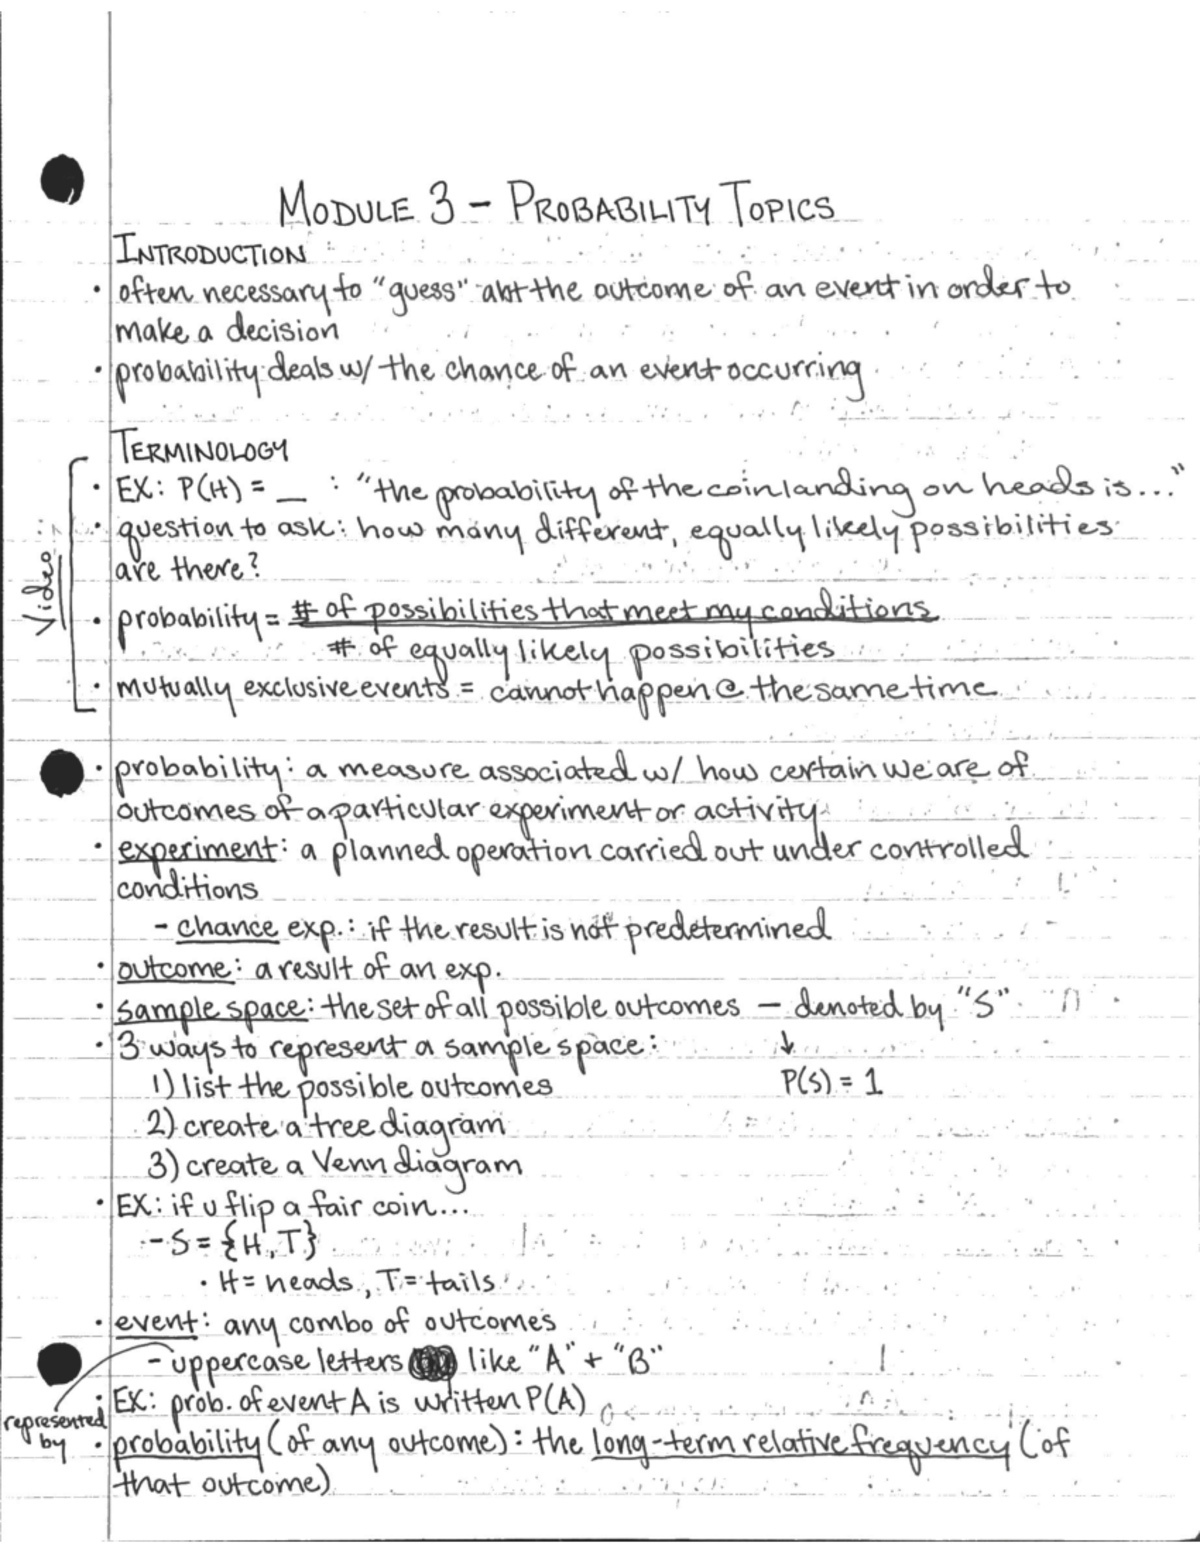 MODULE 3 - PROBABILITY TOPICS
INTRODUCTION
• often necessary to "guess" abt the outcome of an event in order to
make a decision
• probability deals w/ the chance of an event occurring
TERMINOLOGY
• EX: P(H) = _ : "the probability of the coin landing on heads is..."
• question to ask: how many different, equally likely possibilities
are there?
Video
• probability = # of possibilities that meet my conditions
# of equally likely possibilities
• mutually exclusive events = cannot happen @ the same time
• probability: a measure associated w/ how certain we are of
outcomes of a particular experiment or activity
• experiment: a planned operation carried out under controlled
conditions
- chance exp.: if the result is not predetermined
• outcome: a result of an exp.
• sample space: the set of all possible outcomes — denoted by "S"
• 3 ways to represent a sample space: ↓
1) list the possible outcomes P(S) = 1
2) create a tree diagram
3) create a Venn diagram
• EX: if u flip a fair coin...
- S = {H, T}
• H = heads, T = tails
• event: any combo of outcomes
- uppercase letters like "A" + "B"
• EX: prob. of event A is written P(A)
represented
by
• probability (of any outcome): the long-term relative frequency (of
that outcome)